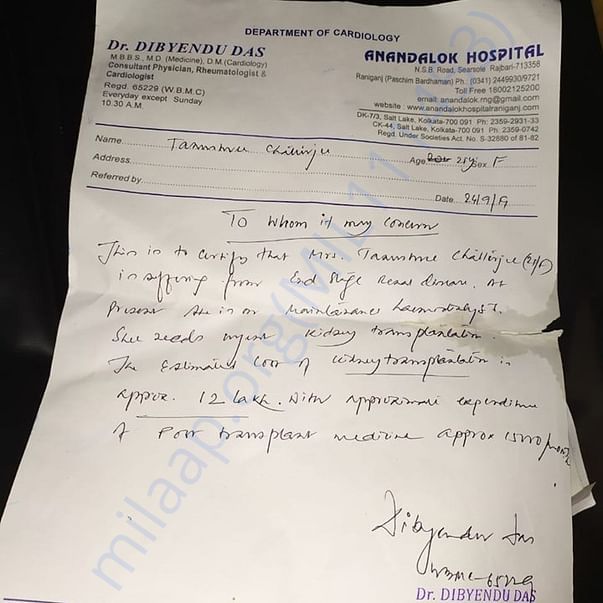 DEPARTMENT OF CARDIOLOGY
Dr. DIBYENDU DAS
M.B.B.S., M.D. (Medicine), D.M. (Cardiology)
Consultant Physician, Rheumatologist &
Cardiologist
Regd. 65229 (W.B.M.C)
Everyday except Sunday
10.30 A.M.
ANANDALOK HOSPITAL
N.S.B. Road, Searsole Rajbari-713358
Raniganj (Paschim Bardhaman) Ph. (0341) 2449930/9721
Toll Free 18002125200
email: anandalok.rng@gmail.com
website : www.anandalokhospitalraniganj.com
DK-7/3, Salt Lake, Kolkata-700 091 Ph: 2359-2931-33
CK-44, Salt Lake, Kolkata-700 091 Ph: 2359-0742
Regd. Under Societies Act. No. S-32880 of 81-82
Name Age 25y Sex F
Address
Referred by Date 24/9/19
To Whom it may concern
This is to certify that Mrs.
is suffering from End Stage Renal disease. At
present she is on Maintainance haemodialysis.
She needs urgent kidney transplantation.
The Estimated cost of kidney transplantation is
approx. 12 Lakh. With approximate expenditure
of Post transplant medicine approx
Dibyendu Das
WBMC-65229
Dr. DIBYENDU DAS
milaap.org